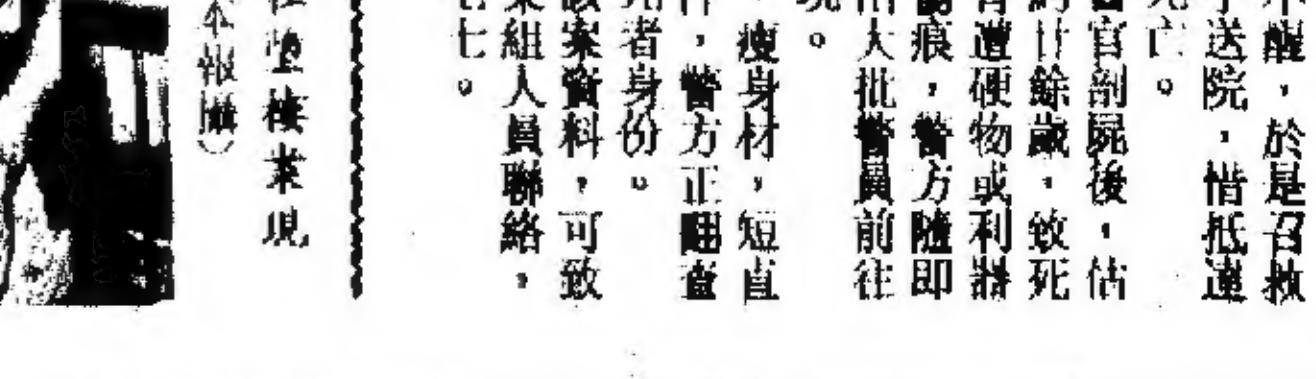 不醒，於是召救
送院，惜抵達
死亡。
官剖屍後，估
約廿餘歲，致死
遭硬物或利器
傷痕，警方隨即
大批警員前往
現。
，瘦身材，短直
件，警方正翻查
死者身份。
該案資料，可致
案組人員聯絡，
七七。
墮樓案現
本報攝）